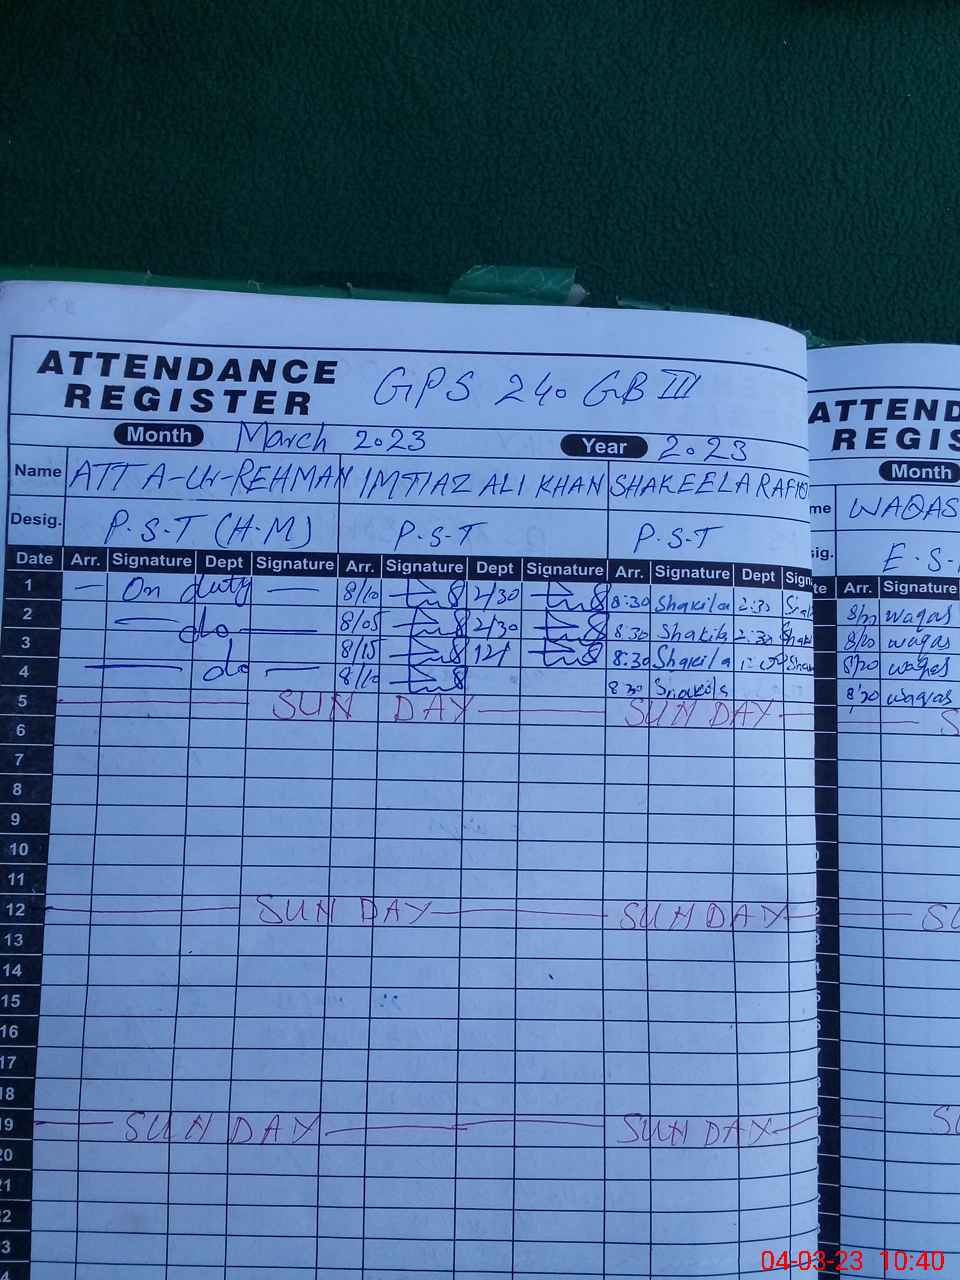 ATTENDANCE REGISTER GPS 240 GB III
Month March 2023 Year 2023
Name ATTA-Ur-REHMAN IMTIAZ ALI KHAN SHAKEELA
Desig. P.S.T (H.M) P.S.T P.S.T
Date Arr. Signature Dept Signature Arr. Signature Dept Signature Arr. Signature Dept Sign
1 — On duty — 8/10 2/30 8:30 Shakila 2:30
2 — do — 8/05 2/30 8:30 Shakila 2:30
3 — do — 8/15 12/ 8:30 Shakila
4 8/10 8:30
5 SUNDAY SUNDAY
6
7
8
9
10
11
12 SUNDAY SUNDAY
13
14
15
16
17
18
19 SUNDAY SUNDAY
20
21
22
23
ATTEND
REGIS
Month
me WAQAS
sig. E.S.
te Arr. Signature
waqas
8/20 waqas
8/20 waqas
8/20 waqas
S
SU
SU
04-03-23 10:40